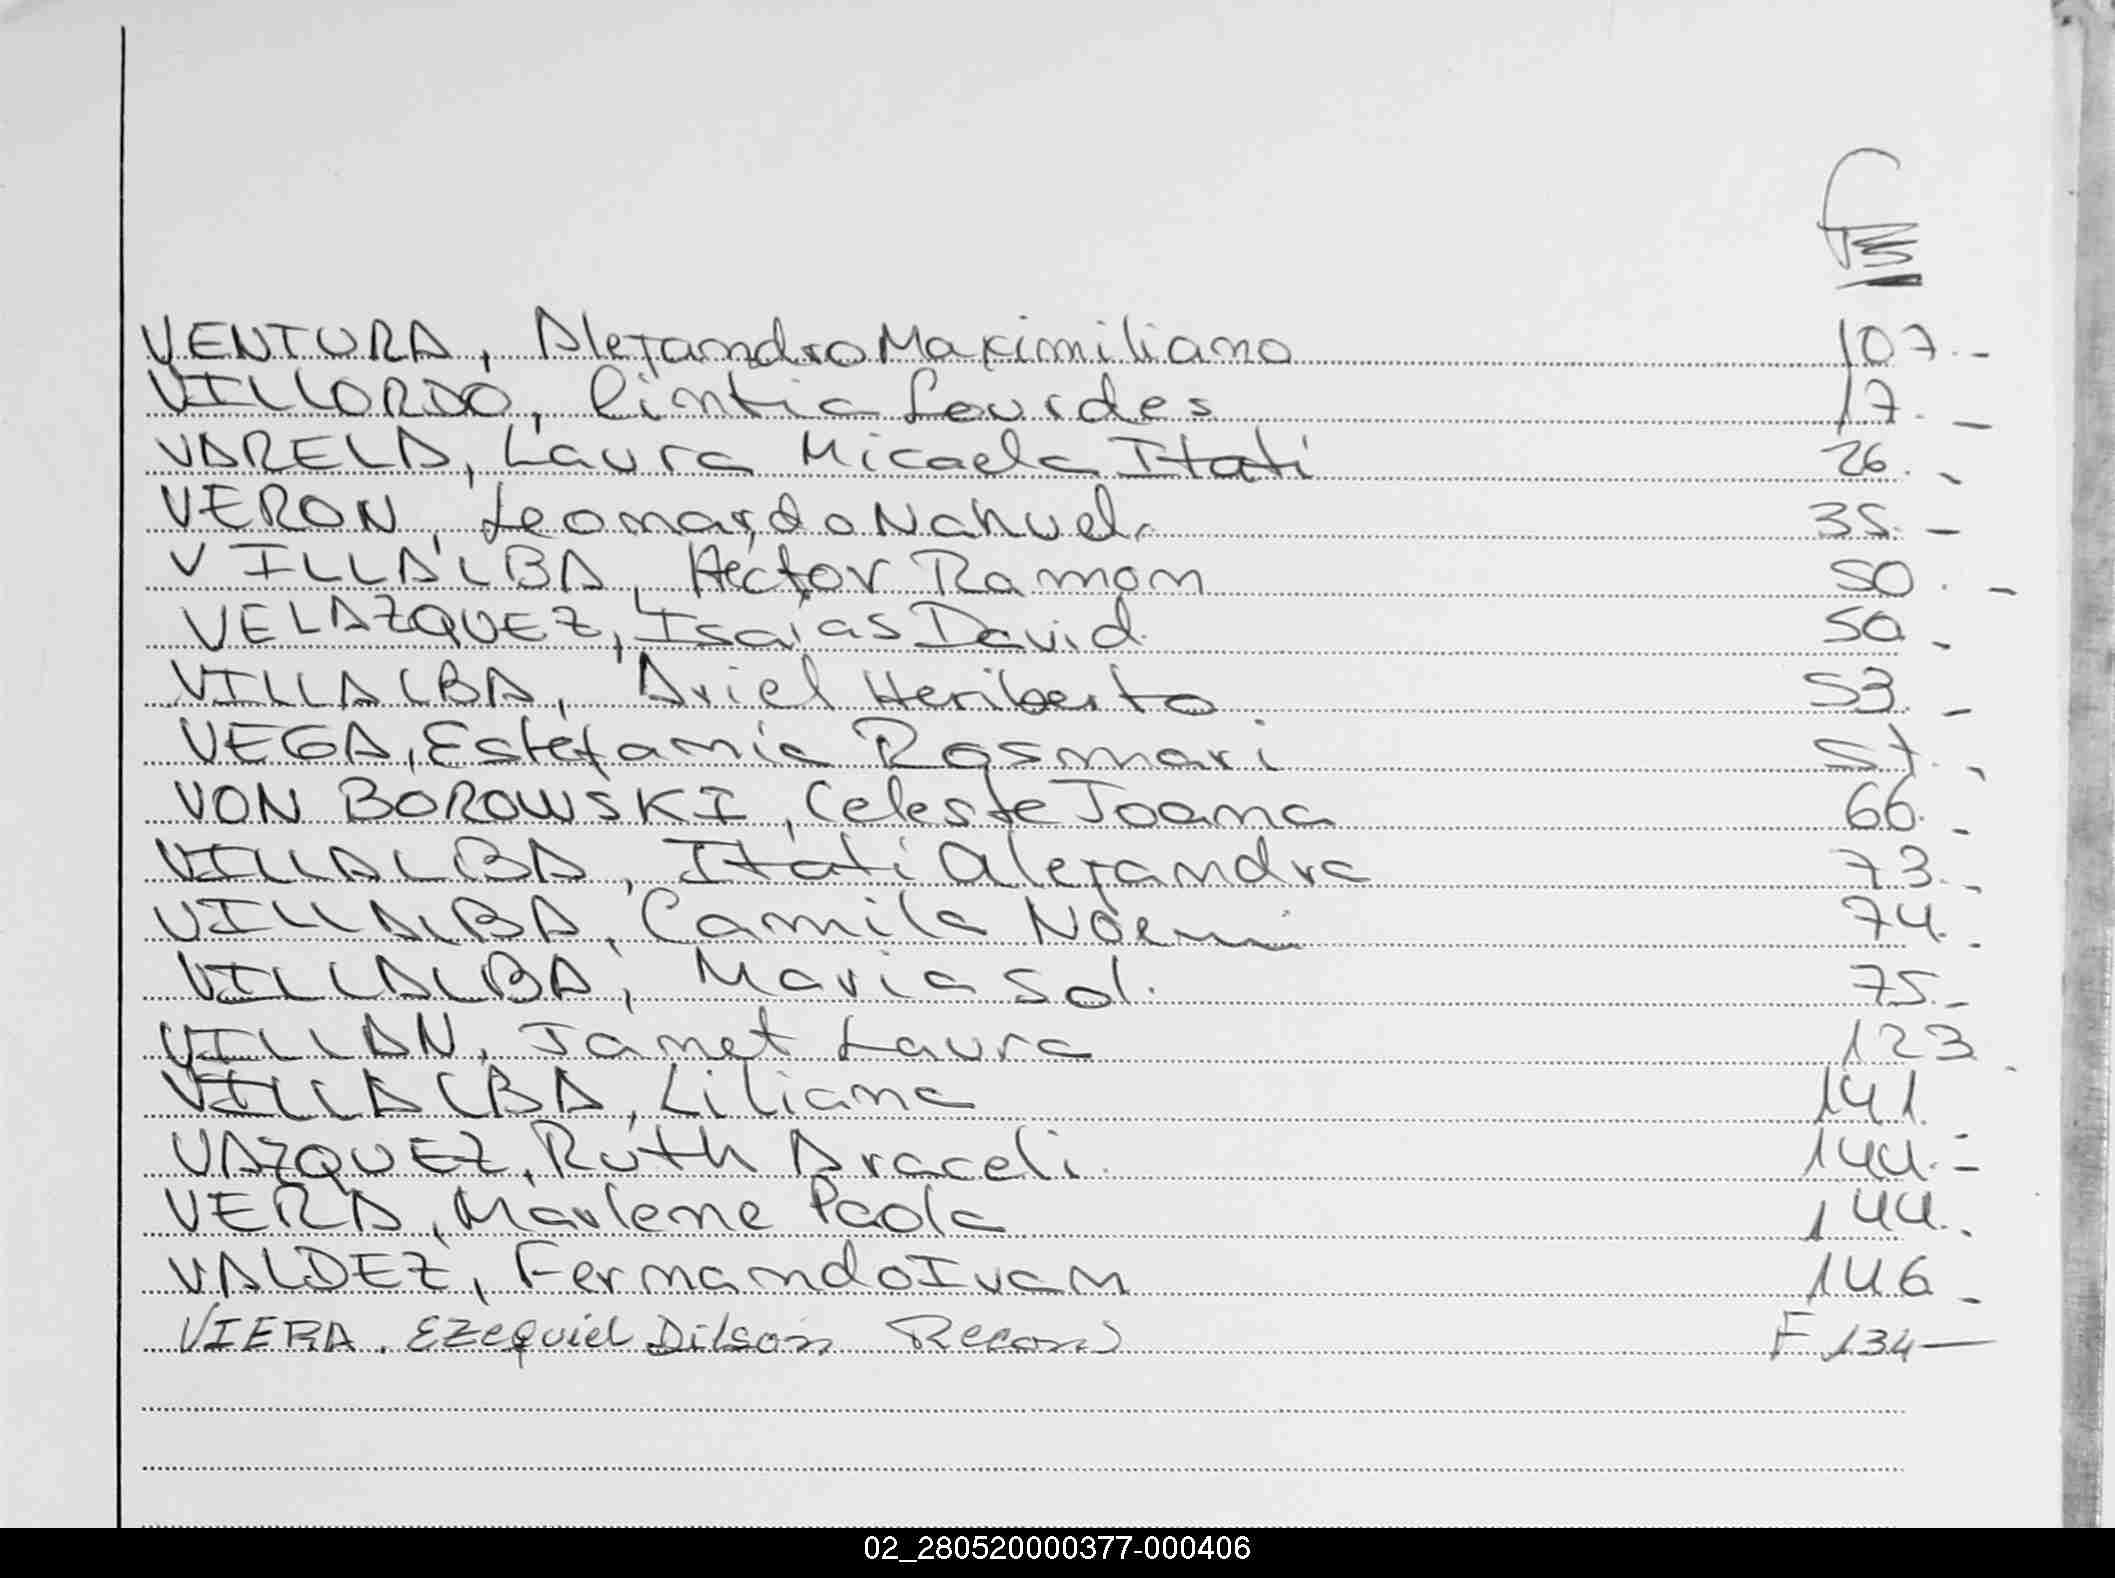 Fs
VENTURA, Alejandro Maximiliano 107.-
VILLORDO, Cintia Lourdes 17. -
VARELA, Laura Micaela Itati 26. -
VERON, Leonardo Nahuel. 35. -
VILLALBA, Héctor Ramon 50. -
VELAZQUEZ, Isaias David. 50. -
VILLALBA, Ariel Heriberto 53. -
VEGA, Estefania Rosmari 57. -
VON BOROWSKI, Celeste Joana 66. -
VILLALBA, Itati Alejandra 73. -
VILLALBA, Camila Noemi 74. -
VILLALBA, Maria Sol. 75. -
VILLAN, Janet Laura 123. -
VILLALBA, Liliana 141. -
VAZQUEZ, Ruth Araceli. 144. -
VERA, Marlene Paola 144. -
VALDEZ, Fernando Ivan 146. -
VIERA. Ezequiel Dilson F 134 —
02_280520000377-000406